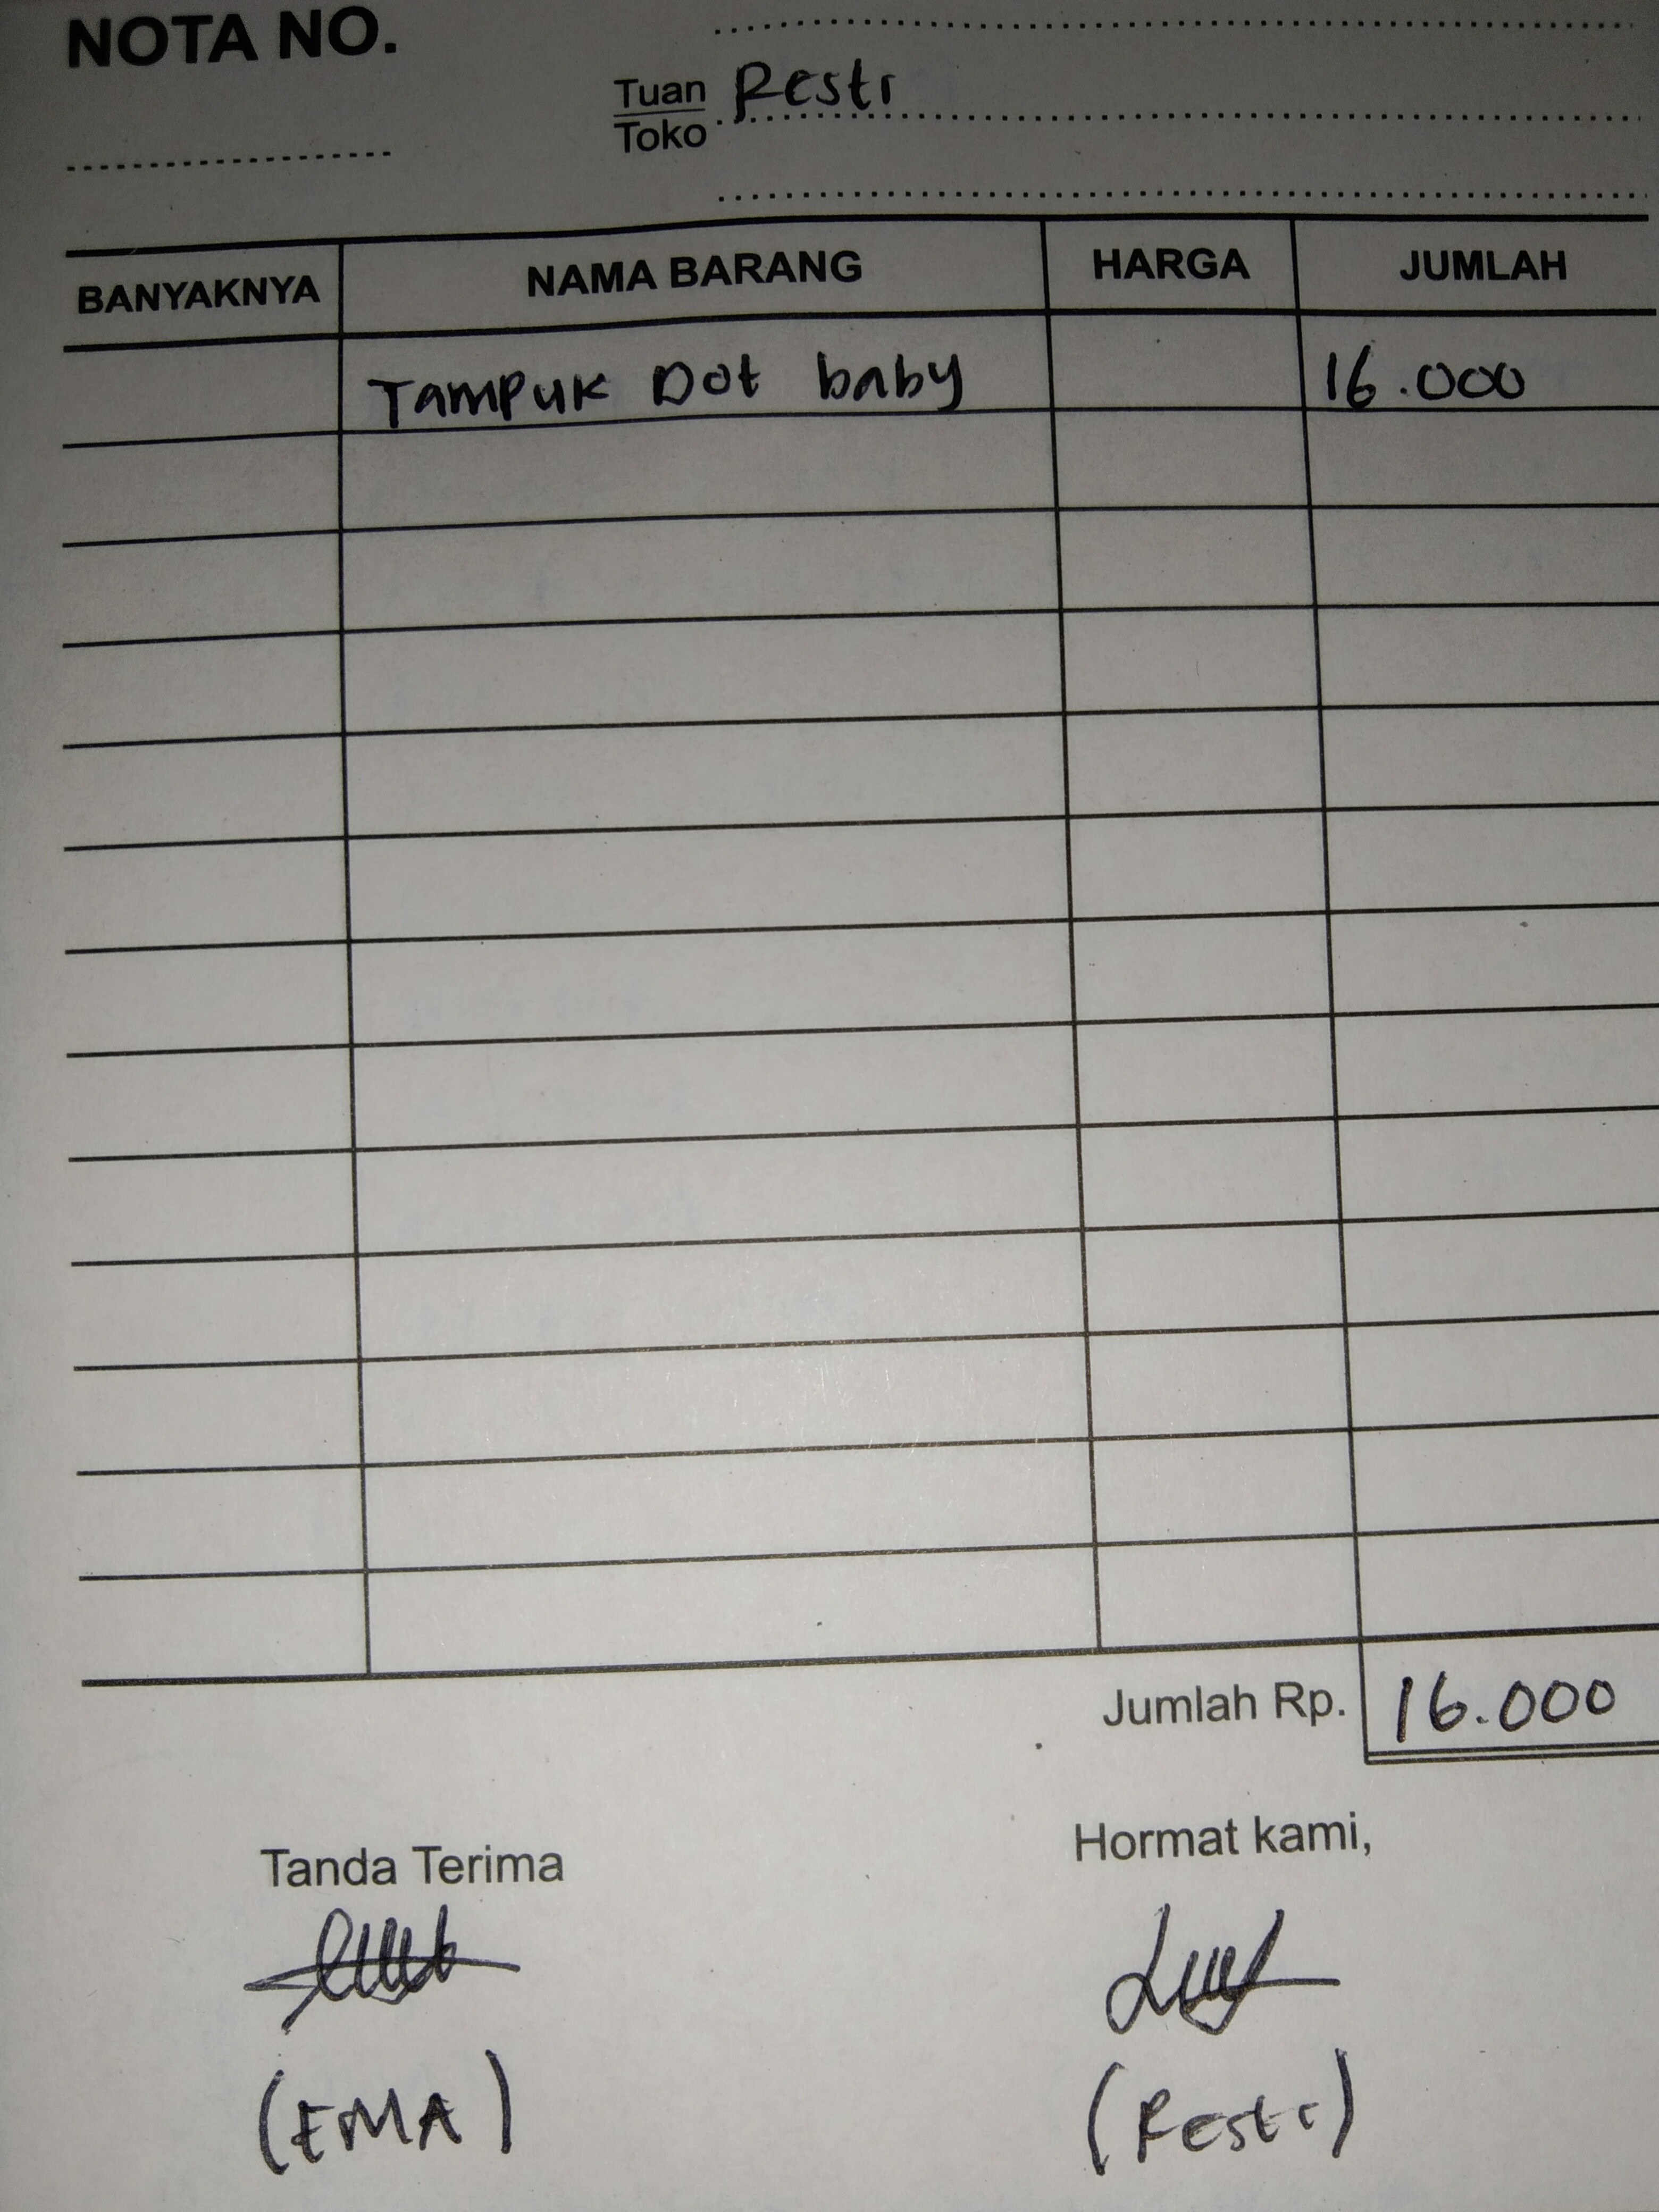 NOTA NO.
Tuan Resti
Toko
BANYAKNYA NAMA BARANG HARGA JUMLAH
Tampuk Dot baby 16.000
Jumlah Rp. 16.000
Tanda Terima Hormat kami,
(EMA) (Resti)